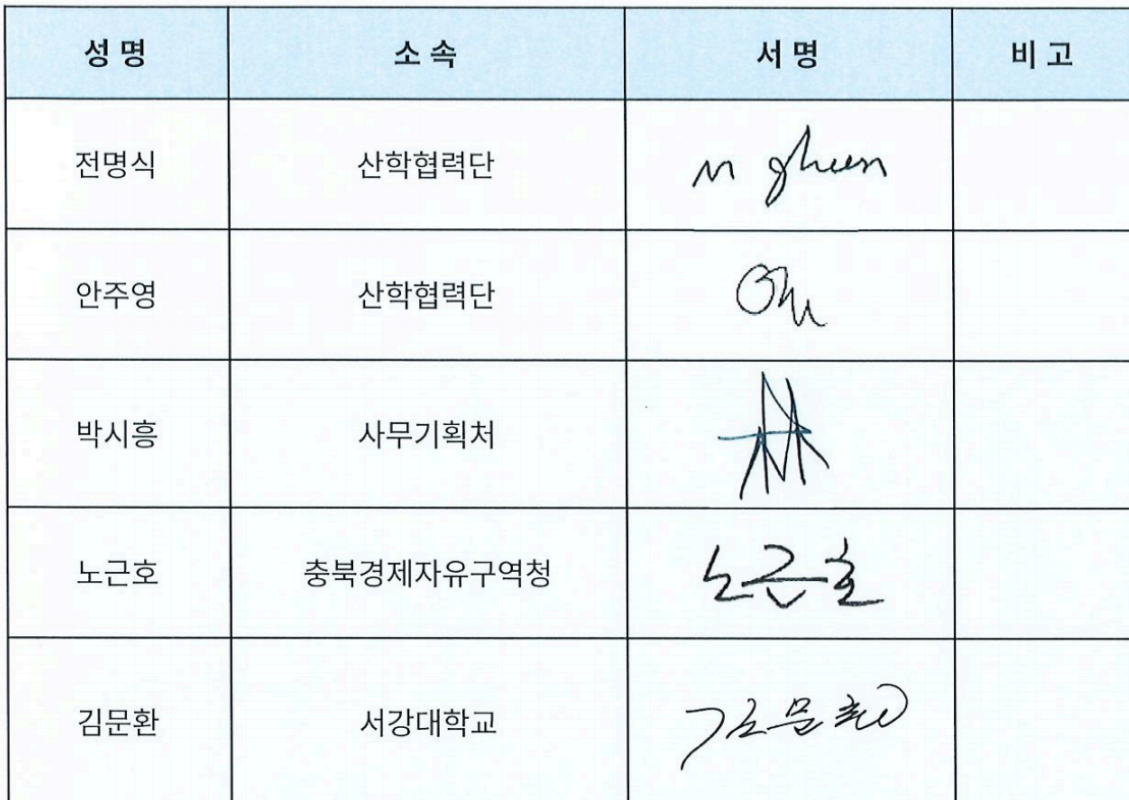 성 명 소 속 서 명 비 고
전명식 산학협력단
안주영 산학협력단
박시흥 사무기획처
노근호 충북경제자유구역청 노근호
김문환 서강대학교 김문환